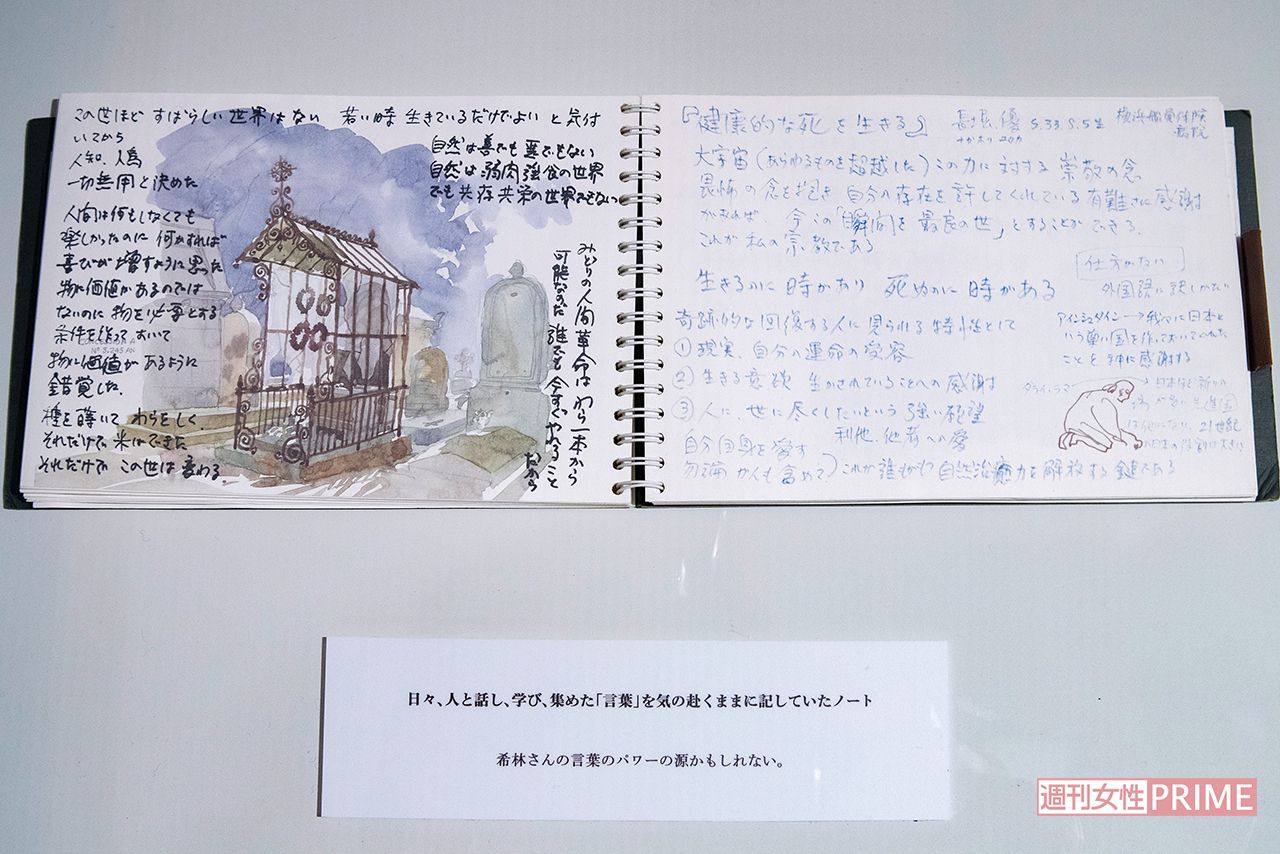 この世ほど すばらしい世界はない 若い時 生きているだけでよいと気付
いてから
人知、人為
一切無用と決めた
人間は何もしなくても
楽しかったのに 何かすれば
喜びが増すように思った
物に価値があるのでは
ないのに 物を必要とする
条件を作っておいて
物に価値があるように
錯覚した
種を蒔いて わらをしく
それだけで 米はできた
それだけで この世は変わる
自然は善でも悪でもない
自然は弱肉強食の世界
でも共存共栄の世界でもない
みどりの人間革命は わら一本から
可能なのだ 誰でも 今すぐやれること
だから
『健康的な死を生きる』
横浜船員保険
病院
大宇宙(あらゆるものを超越した)この力に対する 崇敬の念
畏怖の念を抱き 自分の存在を許してくれている有難さに感謝
があれば、今この「瞬間を最良の世」とすることができる。
これが私の宗教である
生きるに時があり 死ぬに時がある
仕方がない
外国語に訳しがたい
奇跡的な回復する人に見られる特性として
① 現実、自分の運命の受容
② 生きる意欲 生かされていることへの感謝
③ 人に、世に尽くしたいという強い願望
利他、他者への愛
自分自身を愛す
勿論 がんも含めて
これが誰もがもつ自然治癒力を解放する鍵である
アインシュタイン→我々に日本と
いう尊い国を作っておいてくれた
ことを神に感謝する
ダライ・ラマ
日本ほど祈りの
場が多い先進国
は他にない、21世紀
日本の役割は大きい
日々、人と話し、学び、集めた「言葉」を気の赴くままに記していたノート
希林さんの言葉のパワーの源かもしれない。
週刊女性PRIME